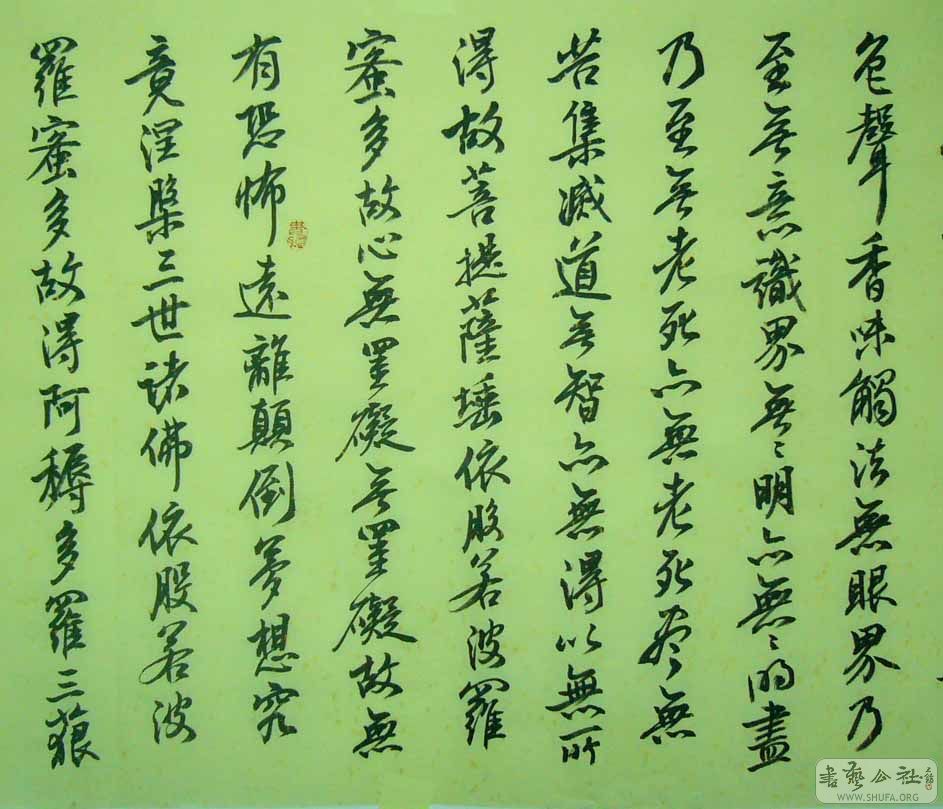 色聲香味觸法無眼界乃
至無意識界無〻明亦無〻明盡
乃至無老死亦無老死盡無
苦集滅道無智亦無得以無所
得故菩提薩埵依般若波羅
蜜多故心無罣礙無罣礙故無
有恐怖遠離顛倒夢想究
竟涅槃三世諸佛依般若波
羅蜜多故得阿耨多羅三藐
書藝公社
WWW.SHUFA.ORG